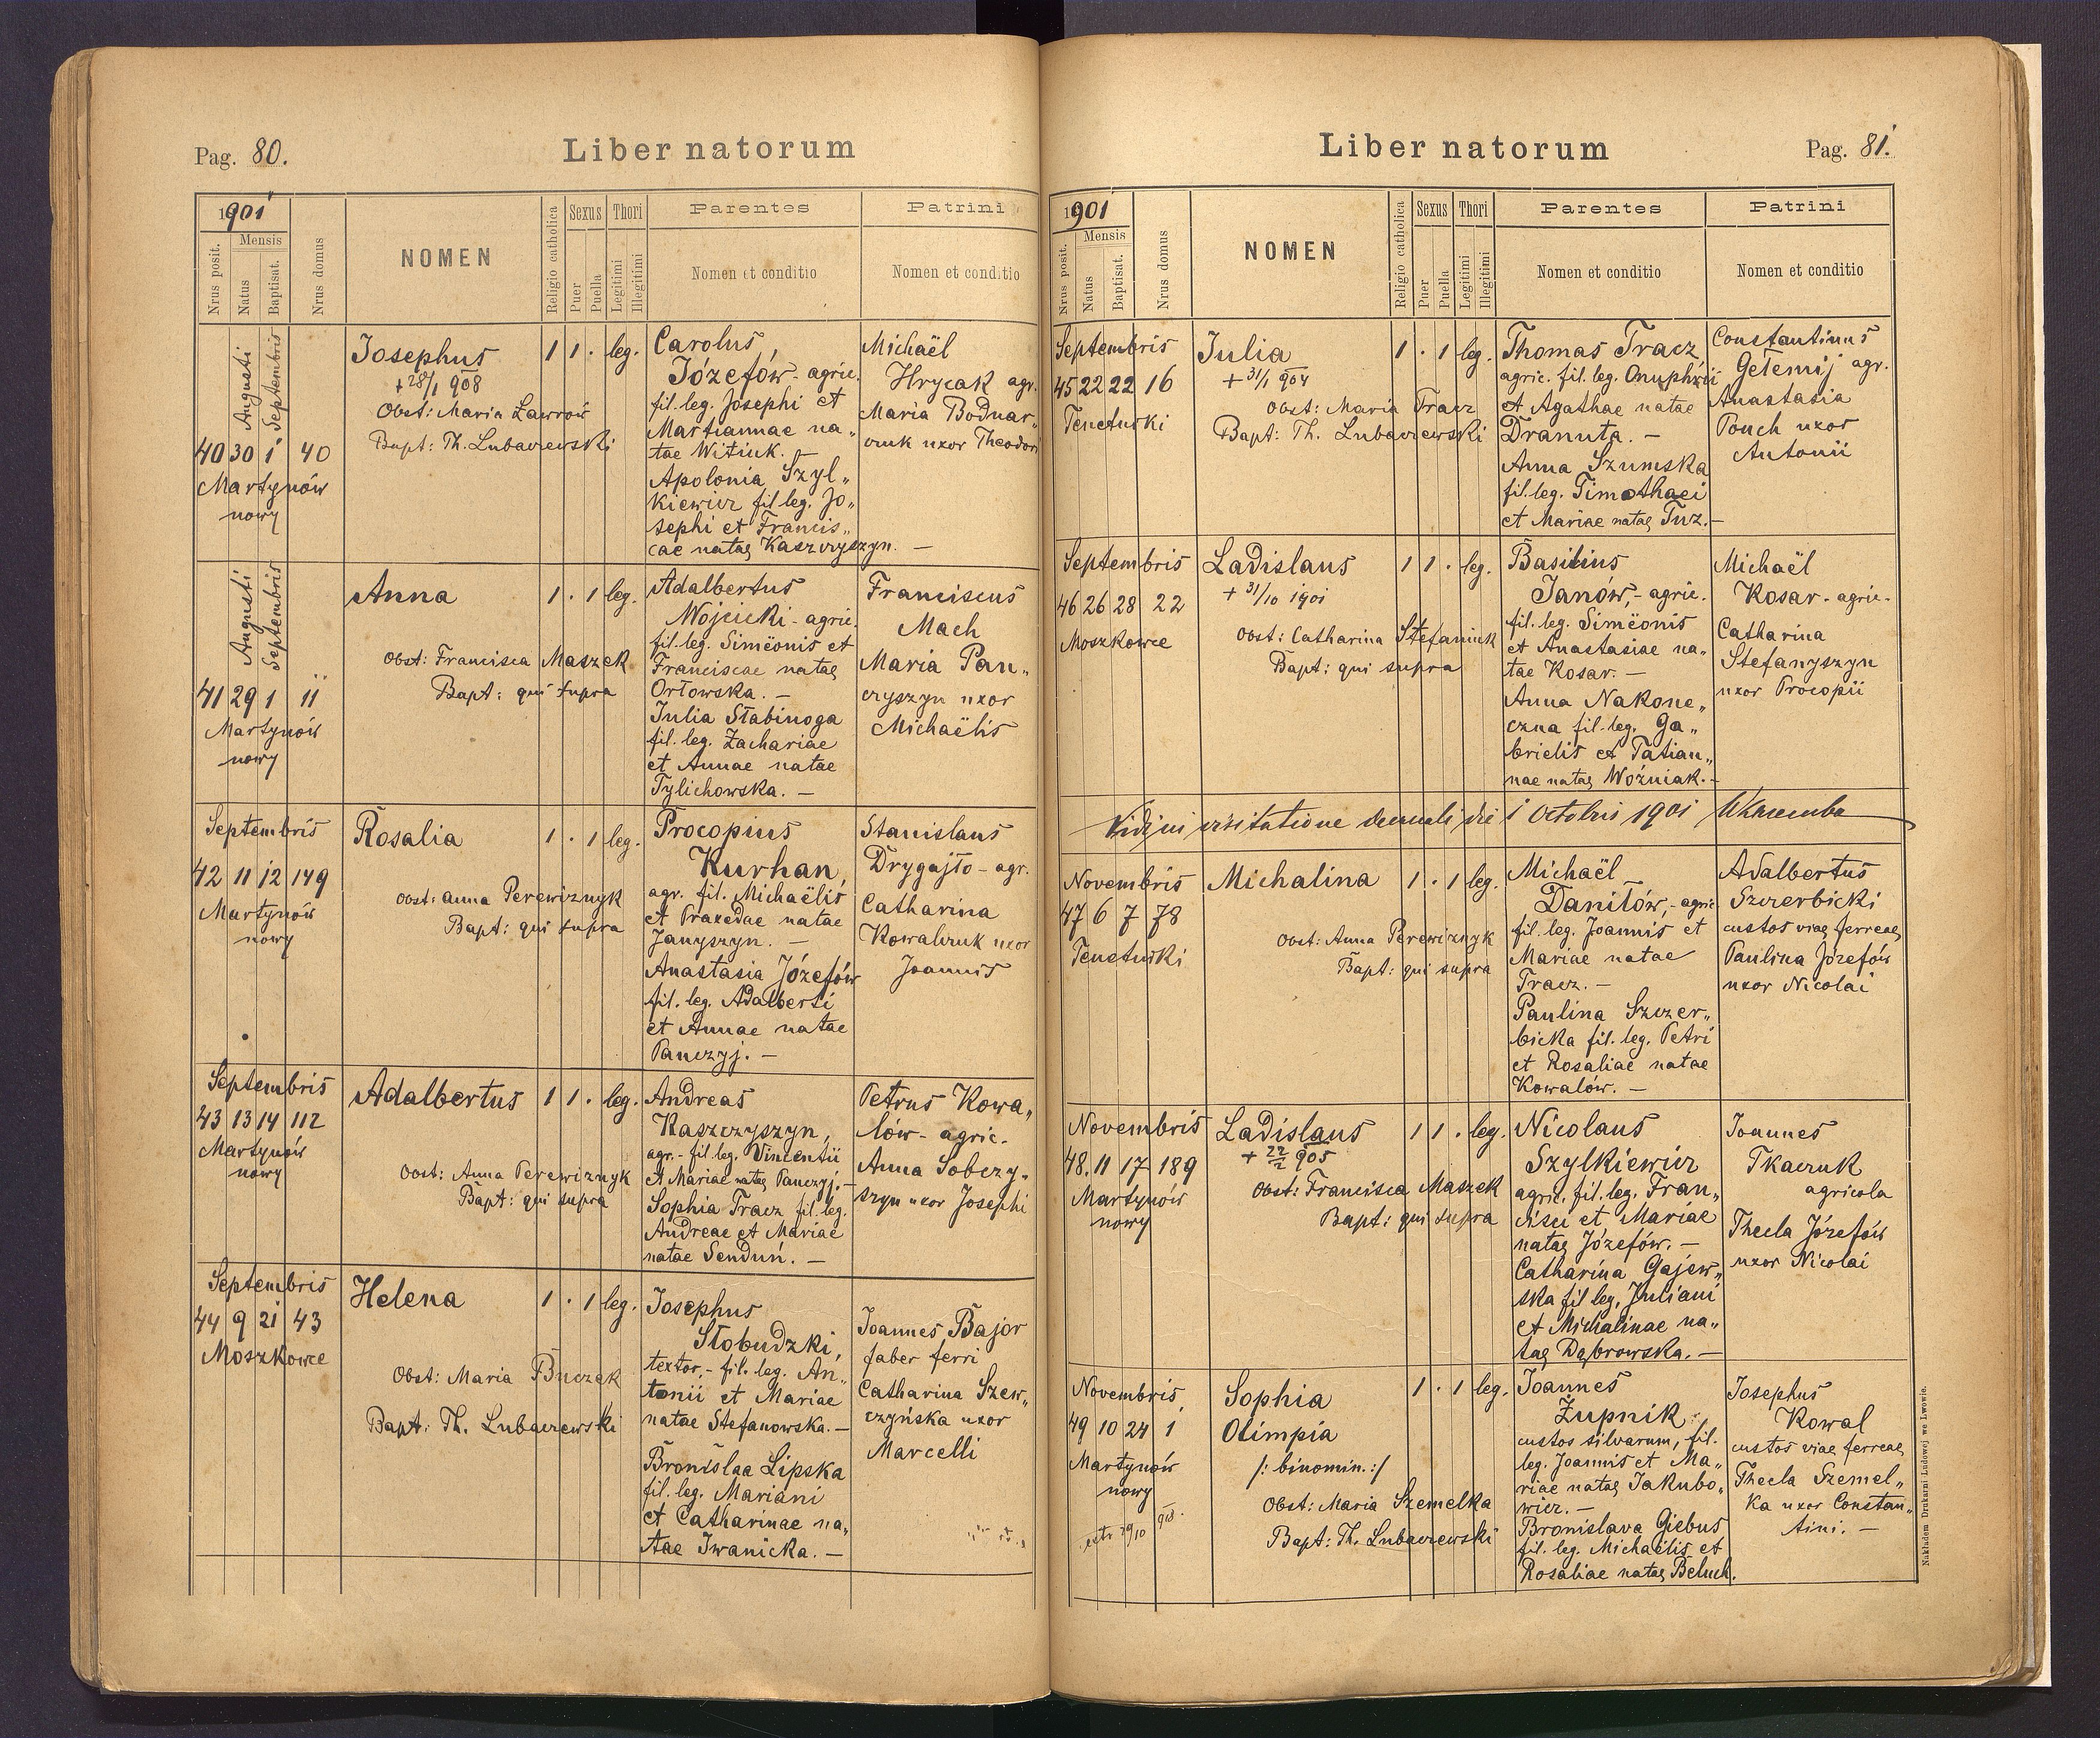 Pag. 80.
Liber natorum
1901
Nrus posit.
Mensis
Natus
Baptisat.
Nrus domus
NOMEN
Religio catholica
Sexus
Puer
Puella
Thori
Legitimi
Illegitimi
Parentes
Nomen et conditio
Patrini
Nomen et conditio
Augusti
Septembris
40 30 1 40
Martynów
nowy
Josephus
+ 28/1 908
Obst: Maria Ławrów
Bapt: Th. Lubaczewski
1 1 . leg.
Carolus
Józefów - agric.
fil. leg. Josephi et
Martiannae na„
tae Witiuk. —
Apolonia Szyl„
kiewicz fil leg. Jo„
sephi et Francis„
cae natae Kaszczyszyn. —
Michaël
Hrycak agr.
Maria Bodnar„
czuk uxor Theodori
Augusti
Septembris
41 29 1 11
Martynów
nowy
Anna
Obst: Francisca Maszek
Bapt: qui supra
1 . 1 leg.
Adalbertus
Wojcicki - agric.
fil. leg. Simëonis et
Franciscae natae
Orłowska. —
Julia Słabinoga
fil. leg. Zachariae
et Annae natae
Tylichowska. —
Franciscus
Mach
Maria Pan„
czyszyn uxor
Michaëlis
Septembris
42 11 12 149
Martynów
nowy
Rosalia
Obst: Anna Perewiznyk
Bapt: qui supra
1 . 1 leg.
Procopius
Kurhan,
agr. fil. Michaëlis
et Praxedae natae
Janyszyn. —
Anastasia Józefów
fil. leg. Adalberti
et Annae natae
Panczyj. —
Stanislaus
Drygajło - agr.
Catharina
Kowalczuk uxor
Joannis
Septembris
43 13 14 112
Martynów
nowy
Adalbertus
Obst: Anna Perewiznyk
Bapt: qui supra
1 1 . leg.
Andreas
Kaszczyszyn,
agr. - fil. leg. Vincentii
et Mariae natae Panczyj. —
Sophia Tracz fil. leg.
Andreae et Mariae
natae Senduń. —
Petrus Kowa„
lów - agric.
Anna Sobczy„
szyn uxor Josephi
Septembris
44 9 21 43
Moszkowce
Helena
Obst: Maria Buczak
Bapt: Th. Lubaczewski
1 . 1 leg.
Josephus
Słobudzki,
textor, - fil. leg. An„
tonii et Mariae
natae Stefanowska. —
Bronislaa Lipska
fil. leg. Mariani
et Catharinae na„
tae Iwanicka. —
Joannes Bajor
faber ferri
Catharina Szew„
czyńska uxor
Marcelli
Liber natorum
Pag. 81.
1901
Nrus posit.
Mensis
Natus
Baptisat.
Nrus domus
NOMEN
Religio catholica
Sexus
Puer
Puella
Thori
Legitimi
Illegitimi
Parentes
Nomen et conditio
Patrini
Nomen et conditio
Septembris
45 22 22 16
Tenetniki
Julia
+ 31/1 904
Obst: Maria Tracz
Bapt: Th. Lubaczewski
1 . 1 leg.
Thomas Tracz,
agric. fil. leg. Onuphrii
et Agathae natae
Dranuta. —
Anna Szumska
fil. leg. Timothaei
et Mariae natae Tuz. —
Constantinus
Getemij agr.
Anastasia
Pouch uxor
Antonii
Septembris
46 26 28 22
Moszkowce
Ladislaus
+ 31/10 1901
Obst: Catharina Stefaniuk
Bapt: qui supra
1 1 . leg.
Basilius
Janów, - agric.
fil. leg. Simëonis
et Anastasiae na„
tae Kosar. —
Anna Nakone„
czna fil. leg. Ga„
brielis et Tatian„
nae natae Woźniak. —
Michaël
Kosar - agric.
Catharina
Stefanyszyn
uxor Procopii
Vidi in visitatione decanali die 1 Octobris 1901
Novembris
47 6 7 78
Tenetniki
Michalina
Obst: Anna Perewiznyk
Bapt: qui supra
1 . 1 leg.
Michaël
Daniłów, - agric.
fil. leg. Joannis et
Mariae natae
Tracz. —
Paulina Szczer„
bicka fil. leg. Petri
et Rosaliae natae
Kowalów. —
Adalbertus
Szczerbicki
custos viae ferreae
Paulina Józefów
uxor Nicolai
Novembris
48. 11 17 189
Martynów
nowy
Ladislaus
+ 22/2 905
Obst: Francisca Maszek
Bapt: qui supra
1 1 . leg.
Nicolaus
Szylkiewicz
agric. fil. leg. Fran„
cisci et Mariae
natae Józefów. —
Catharina Gajew„
ska fil leg. Juliani
et Michalinae na„
tae Dąbrowska. —
Joannes
Tkaczuk
agricola
Thecla Józefów
uxor Nicolai
Novembris
49 10 24 1
Martynów
nowy
Sophia
Olimpia
/: binomin. :/
Obst: Maria Szemelka
Bapt: Th. Lubaczewski
1 . 1 leg.
Joannes
Żupnik
custos silvarum, fil.
leg. Joannis et Ma„
riae natae Jakubo„
wicz. —
Bronislava Giebus
fil. leg. Michaëlis et
Rosaliae natae Beluch.
Josephus
Kowal
custos viae ferreae
Thecla Szemel„
ka uxor Constan„
tini. —
Nakładem Drukarni Ludowej we Lwowie.